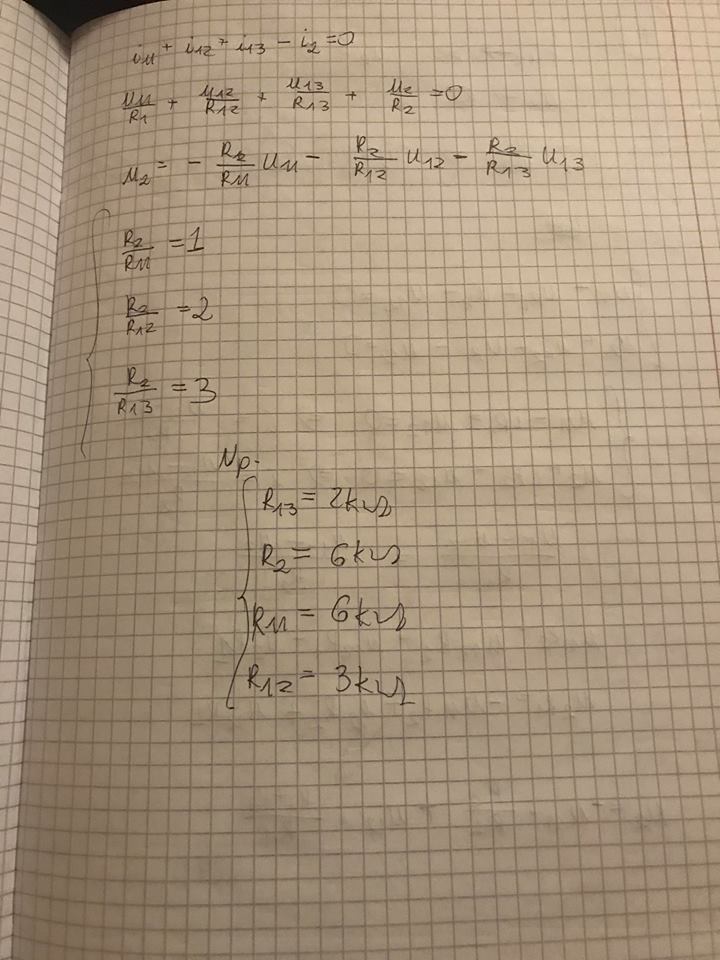 i11 + i12 + i13 - i2 = 0
u11/R1 + u12/R12 + u13/R13 + u2/R2 = 0
u2 = - R2/R11 u11 - R2/R12 u12 - R2/R13 u13
R2/R11 = 1
R2/R12 = 2
R2/R13 = 3
Np.
R13 = 2kΩ
R2 = 6kΩ
R11 = 6kΩ
R12 = 3kΩ